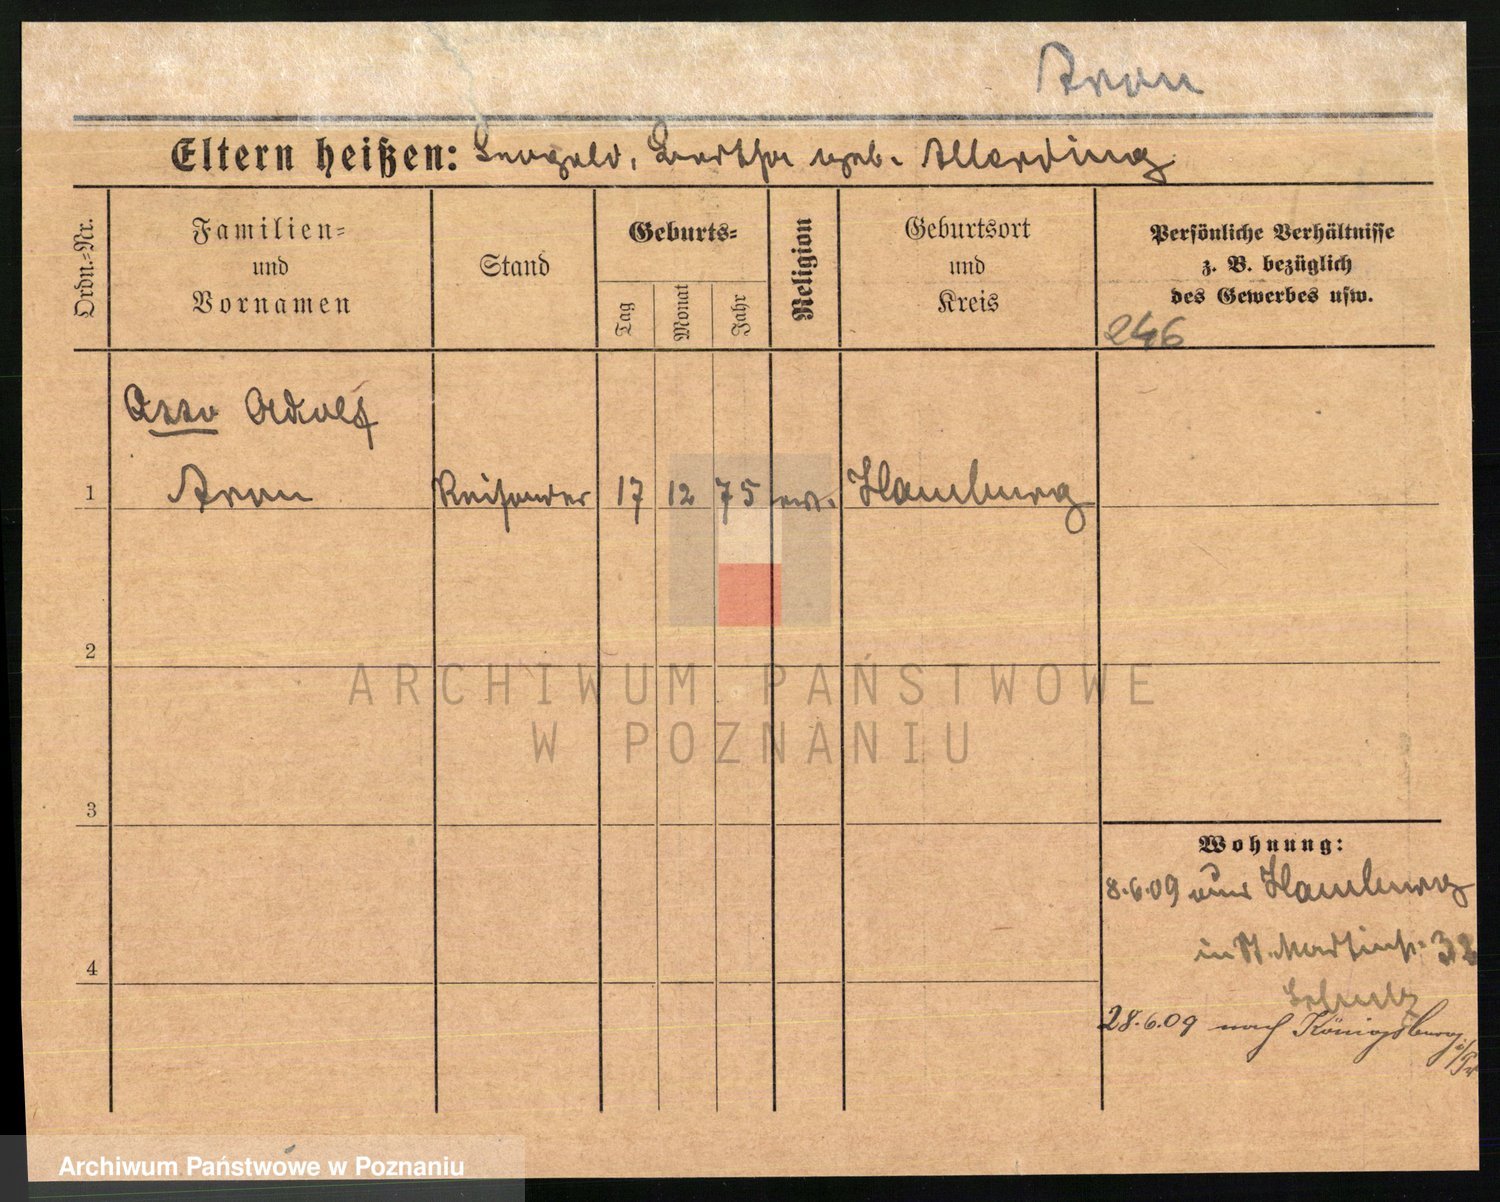 Aron
Eltern heißen: Leopold, Bertha geb. Allerding
Ordn.-Nr.
Familien-
und
Vornamen
Stand
Geburts-
Tag
Monat
Jahr
Religion
Geburtsort
und
Kreis
Persönliche Verhältnisse
z. B. bezüglich
des Gewerbes usw.
246
Otto Adolf
1 Aron Reisender 17 12 75 ev. Hamburg
2
3
4
Wohnung:
8.6.09 aus Hamburg
in St. Martinstr. 32
Schulz
28.6.09 nach Königsberg
i/Pr
ARCHIWUM PAŃSTWOWE
W POZNANIU
Archiwum Państwowe w Poznaniu